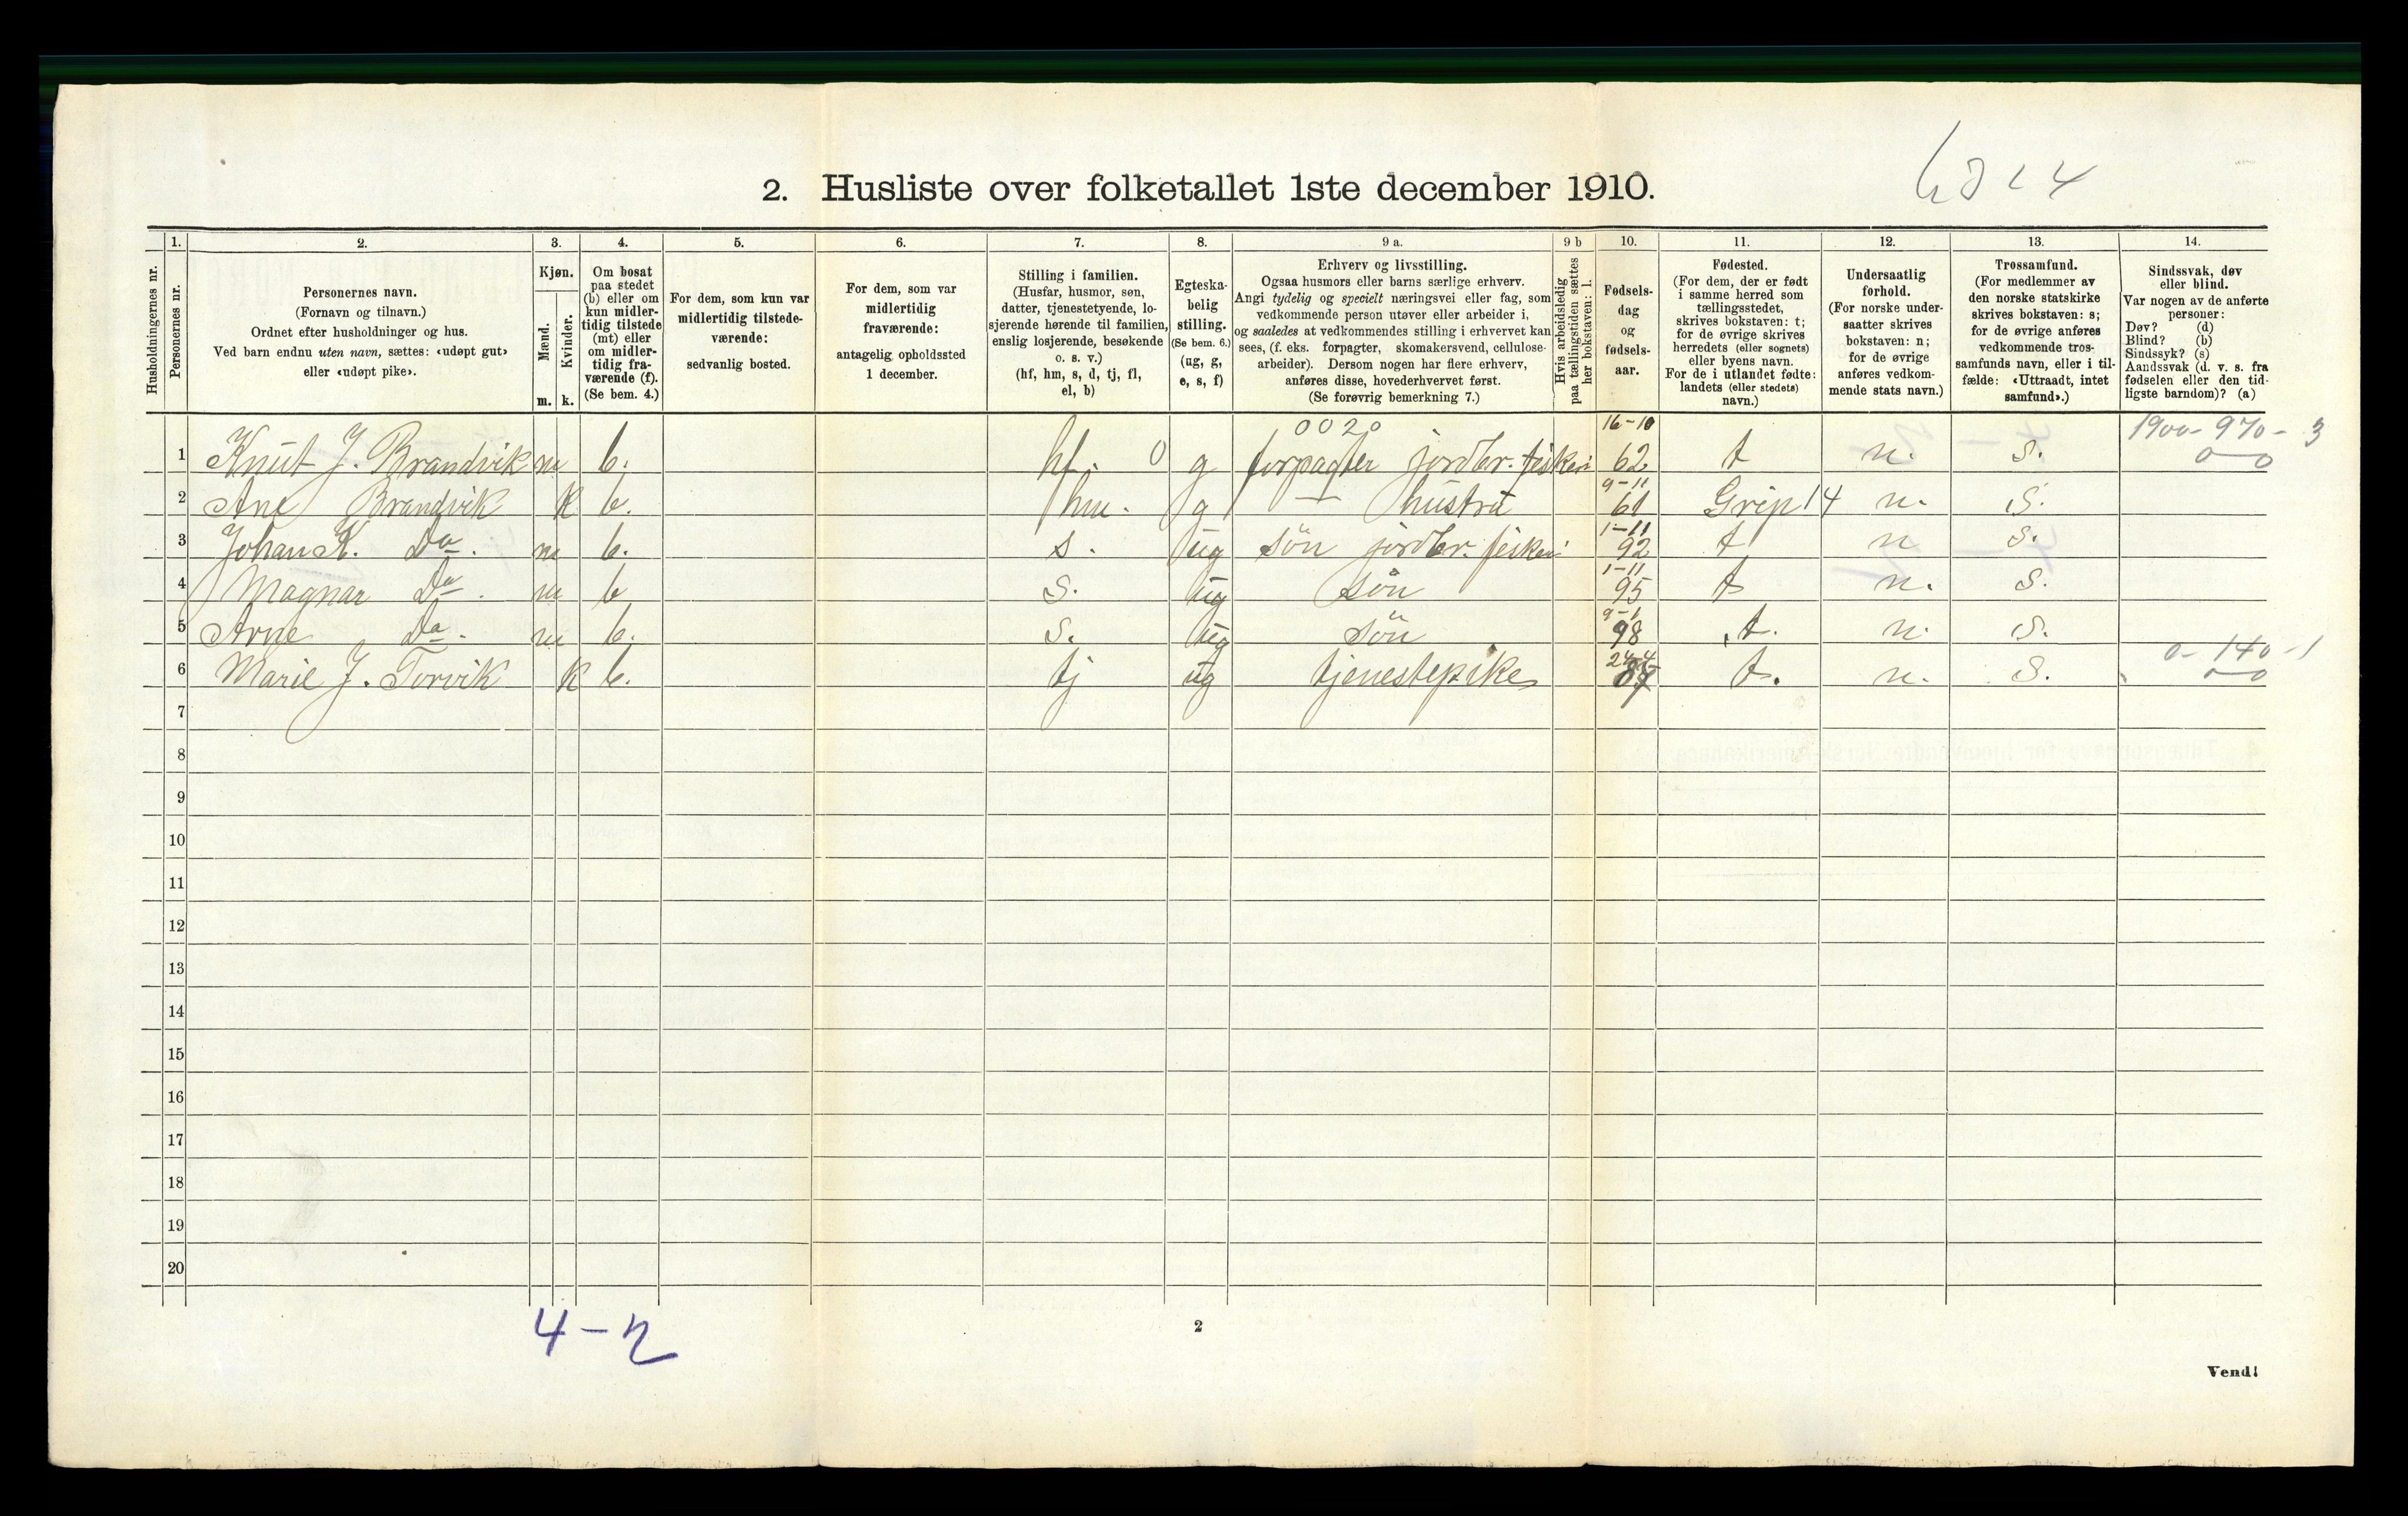 2. Husliste over folketallet 1ste december 1910.
1. 2. 3. 4. 5. 6. 7. 8. 9 a. 9 b 10. 11. 12. 13. 14.
Husholdningernes nr.
Personernes nr.
Personernes navn.
(Fornavn og tilnavn.)
Ordnet efter husholdninger og hus.
Ved barn endnu uten navn, sættes: «udøpt gut»
eller «udøpt pike».
Kjøn.
Mænd.
Kvinder.
m. k.
Om bosat
paa stedet
(b) eller om
kun midler-
tidig tilstede
(mt) eller
om midler-
tidig fra-
værende (f).
(Se bem. 4.)
For dem, som kun var
midlertidig tilstede-
værende:
sedvanlig bosted.
For dem, som var
midlertidig
fraværende:
antagelig opholdssted
1 december.
Stilling i familien.
(Husfar, husmor, søn,
datter, tjenestetyende, lo-
sjerende hørende til familien,
enslig losjerende, besøkende
o. s. v.)
(hf, hm, s, d, tj, fl,
el, b)
Egteska-
belig
stilling.
(Se bem. 6.)
(ug, g,
e, s, f)
Erhverv og livsstilling.
Ogsaa husmors eller barns særlige erhverv.
Angi tydelig og specielt næringsvei eller fag, som
vedkommende person utøver eller arbeider i,
og saaledes at vedkommendes stilling i erhvervet kan
sees, (f. eks. forpagter, skomakersvend, cellulose-
arbeider). Dersom nogen har flere erhverv,
anføres disse, hovederhvervet først.
(Se forøvrig bemerkning 7.)
Hvis arbeidsledig
paa tællingstiden sættes
her bokstaven: l.
Fødsels-
dag
og
fødsels-
aar.
Fødested.
(For dem, der er født
i samme herred som
tællingsstedet,
skrives bokstaven: t;
for de øvrige skrives
herredets (eller sognets)
eller byens navn.
For de i utlandet fødte:
landets (eller stedets)
navn.)
Undersaatlig
forhold.
(For norske under-
saatter skrives
bokstaven: n;
for de øvrige
anføres vedkom-
mende stats navn.)
Trossamfund.
(For medlemmer av
den norske statskirke
skrives bokstaven: s;
for de øvrige anføres
vedkommende tros-
samfunds navn, eller i til-
fælde: «Uttraadt, intet
samfund».)
Sindssvak, døv
eller blind.
Var nogen av de anførte
personer:
Døv? (d)
Blind? (b)
Sindssyk? (s)
Aandssvak (d. v. s. fra
fødselen eller den tid-
ligste barndom)? (a)
0020 16-10 1900- 970- 3
1 Knut J. Brandvik m b. hf. 0 g forpagter jordbr. fiskeri 62 t n. s. 0-0
9-11
2 Ane Brandvik k b. hm. g — hustru 61 Grip 14 n. s.
1-11
3 Johan K. Do. m b. s. ug søn jordbr. fiskeri 92 t n s.
1-11
4 Magnar Do. m b s. ug søn 95 t n. s.
9-1
5 Arne Do. m b. s. ug søn 98 t. n. s.
24-4 0- 140-1
6 Marie J. Torvik k b. tj ug tjenestepike t. n. s. 0-0
7
8
9
10
11
12
13
14
15
16
17
18
19
20
4-2
2
Vend!